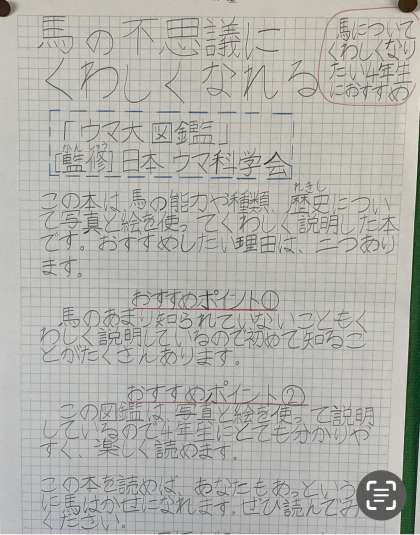 馬の不思議に
くわしくなれる
馬について
くわしくなり
たい4年生
におすすめ
「ウマ大図鑑」
[監修]日本ウマ科学会
かんしゅう
この本は、馬の能力や種類、歴史につい
れきし
て写真と絵を使ってくわしく説明した本
です。おすすめしたい理由は、二つあり
ます。
おすすめポイント①
馬のあまり知られていないこともく
わしく説明しているので初めて知るこ
とがたくさんあります。
おすすめポイント②
この図鑑は、写真と絵を使って説明
しているので4年生にとても分かりや
すく、楽しく読めます。
この本を読めば、あなたもあっという
に馬はかせになれます。ぜひ読んでみ
ください。